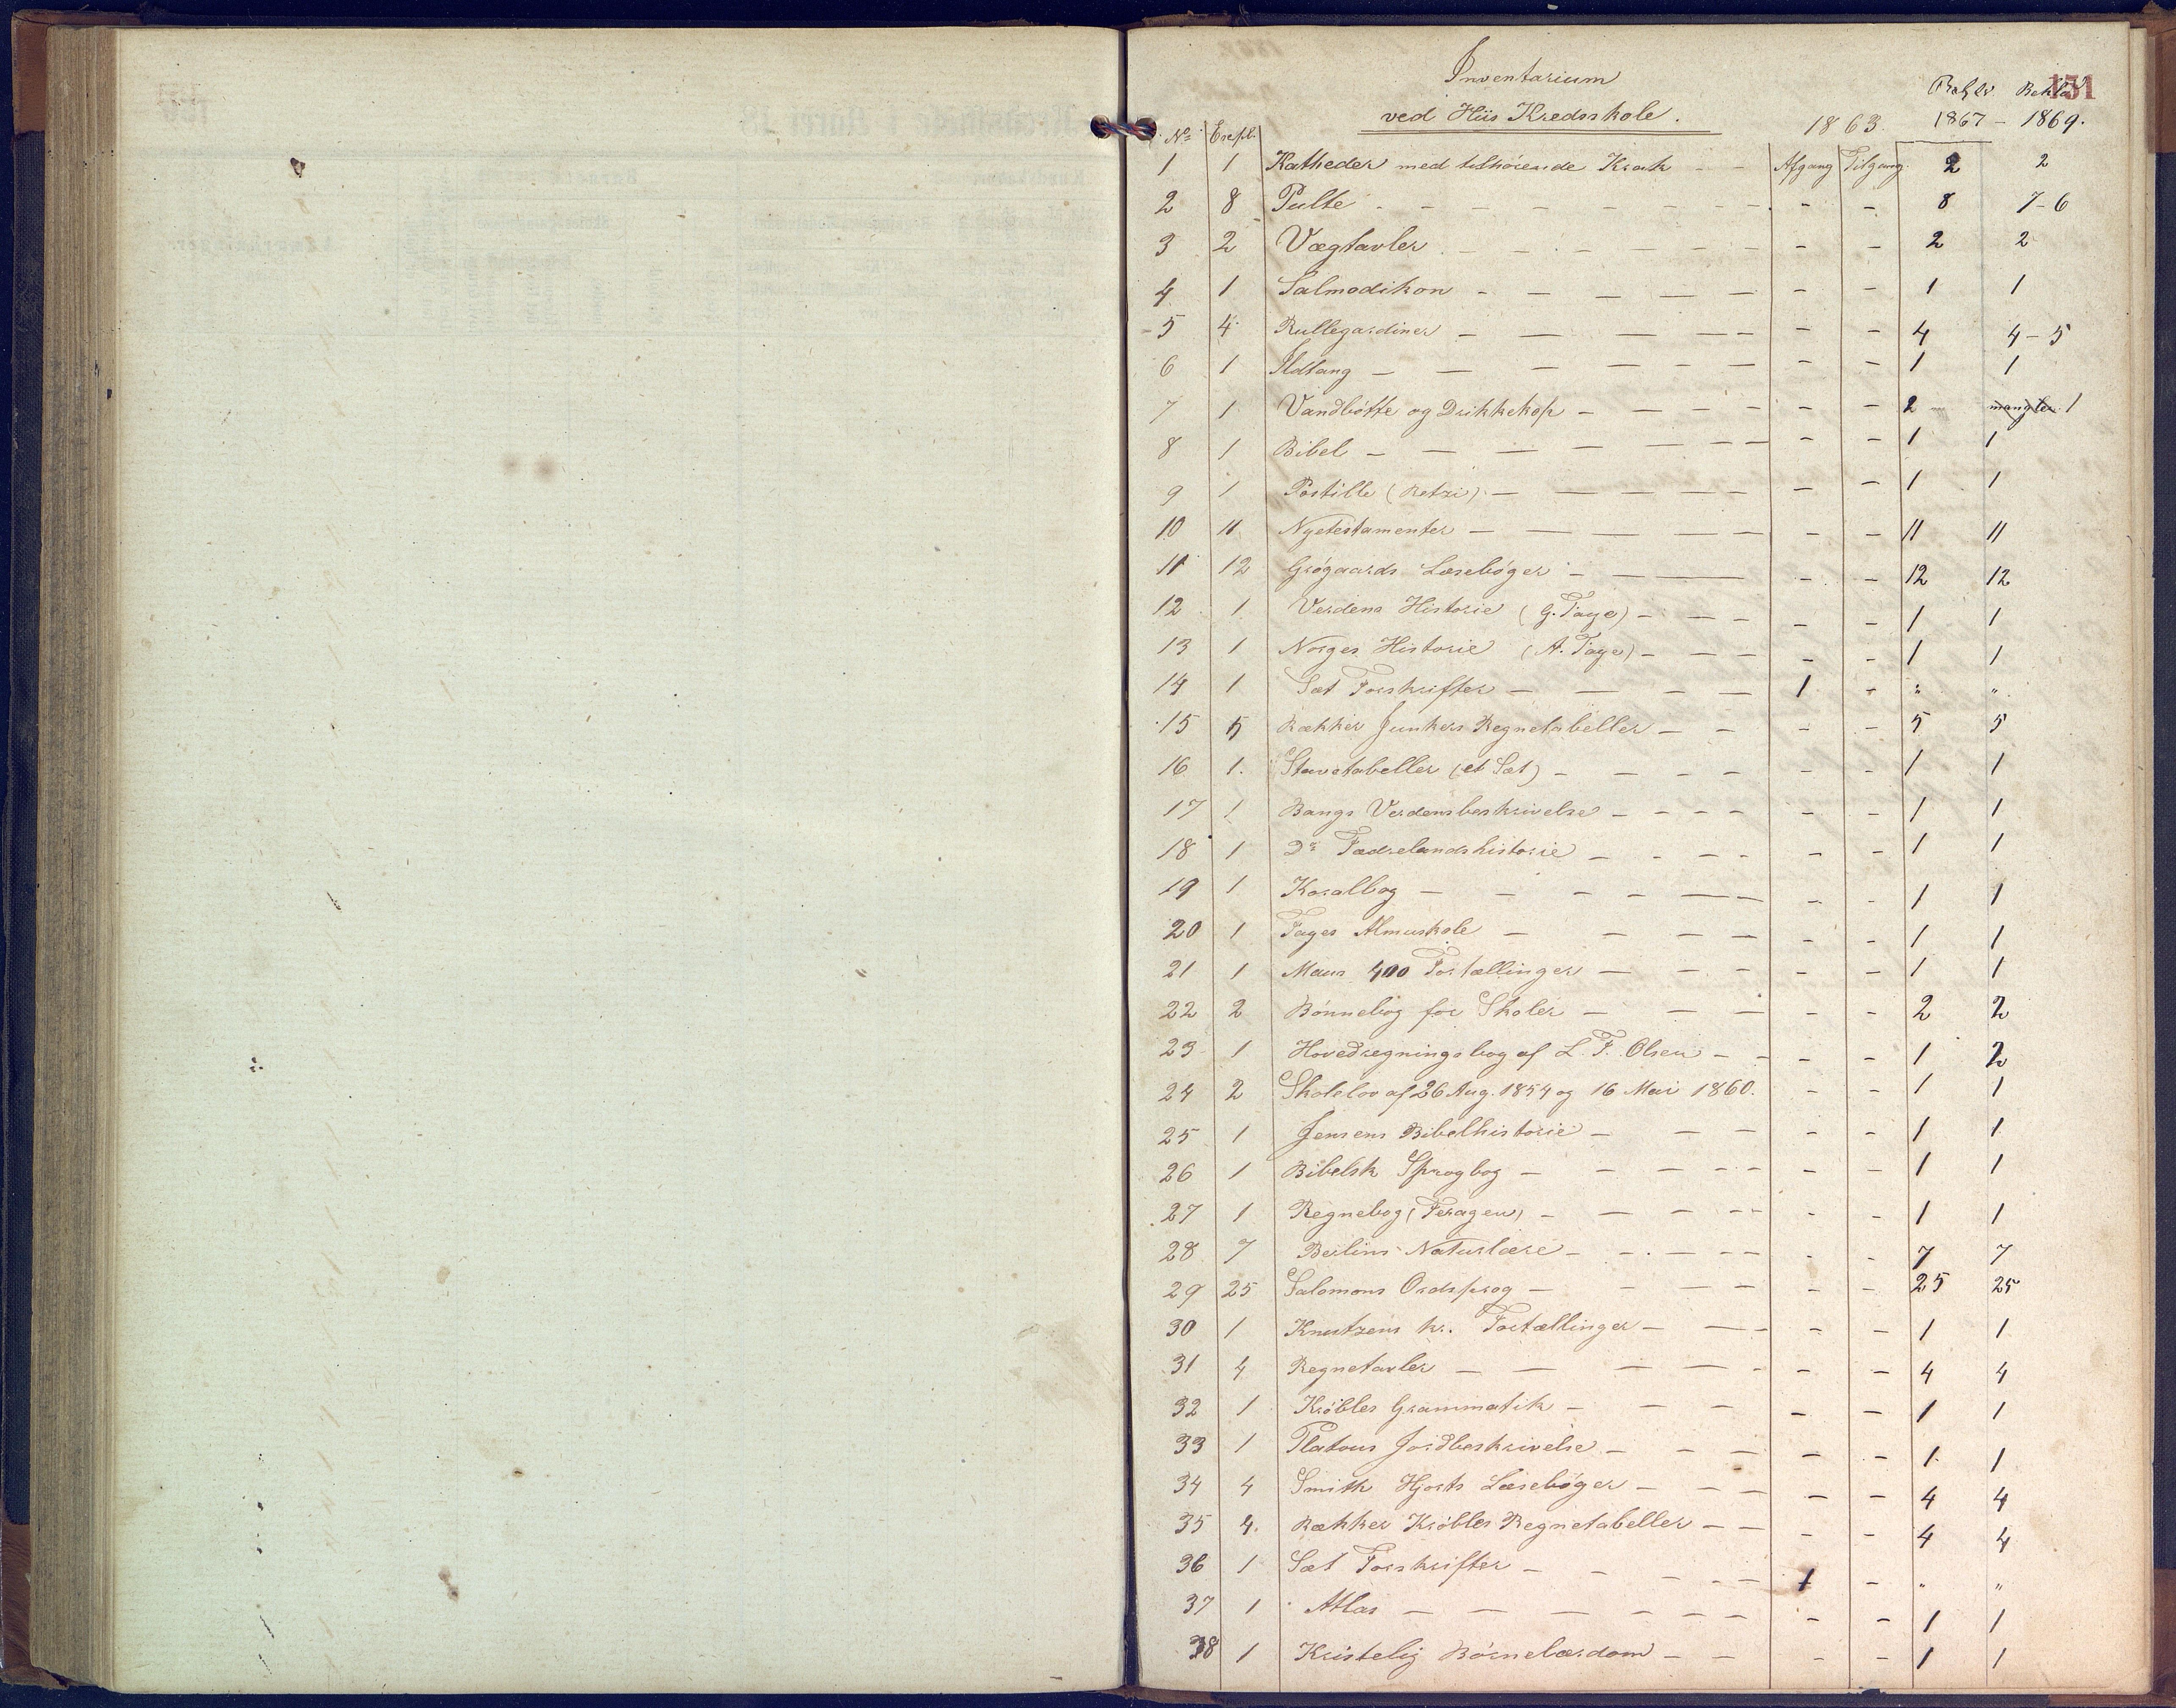 151
Inventarium
ved Hiis Kredsskole.
1863. 1867 - 1869.
No Expl.
1 1 Katheder med tilhørende Krak - - Afgang Tilgang 2 2
2 8 Pulte - - 8 7-6
3 2 Vægtavler - - 2 2
4 1 Salmodikon - - 1 1
5 4 Rullegardiner - - 4 4-5
6 1 Ildtang - - 1 1
7 1 Vandbøtte og Drikkekop - - 2 mangler 1
8 1 Bibel - - 1 1
9 1 Postille (Betzi) - - 1 1
10 11 Nyetestamenter - - 11 11
11 12 Grøgaards Læsebøger - - 12 12
12 1 Verdens Historie (G. Faye) - - 1 1
13 1 Norges Historie (A. Faye) - - 1 1
14 1 Sæt Forskrifter - 1 - " "
15 5 Rækker Junkers Regnetabeller - - 5 5
16 1. Stavetabeller (et Sæt) - - 1 1
17 1 Bangs Verdensbeskrivelse - - 1 1
18 1 Do Fædrelandshistorie - - 1 1
19 1 Koralbog - - 1 1
20 1 Fayes Almuskole - - 1 1
21 1 Maus 400 Fortællinger - - 1 1
22 2 Bønnebog for Skoler - - 2 2
23 1 Hovedregningsbog af L. F. Olsen - - 1 2
24 2 Skolelov af 26 Aug. 1854 og 16 Mai 1860. - - 1 1
25 1 Jensens Bibelhistorie - - 1 1
26 1 Bibelsk Sprogbog - - 1 1
27 1 Regnebog (Feragen) - - 1 1
28 7 Berlins Naturlære - - 7 7
29 25 Salomons Ordsprog - - 25 25
30 1 Knutzens kr. Fortællinger - - 1 1
31 4 Regnetavler - - 4 4
32 1 Krøbles Grammatik - - 1 1
33 1 Platous Jordbeskrivelse - - 1 1
34 4 Smith Hjorts Læsebøger - - 4 4
35 4. Rækker Krøbles Regnetabeller - - 4 4
36 1 Sæt Forskrifter - 1 - " "
37 1 Atlas - - 1 1
38 1 Kristelig Børnelærdom - - 1 1